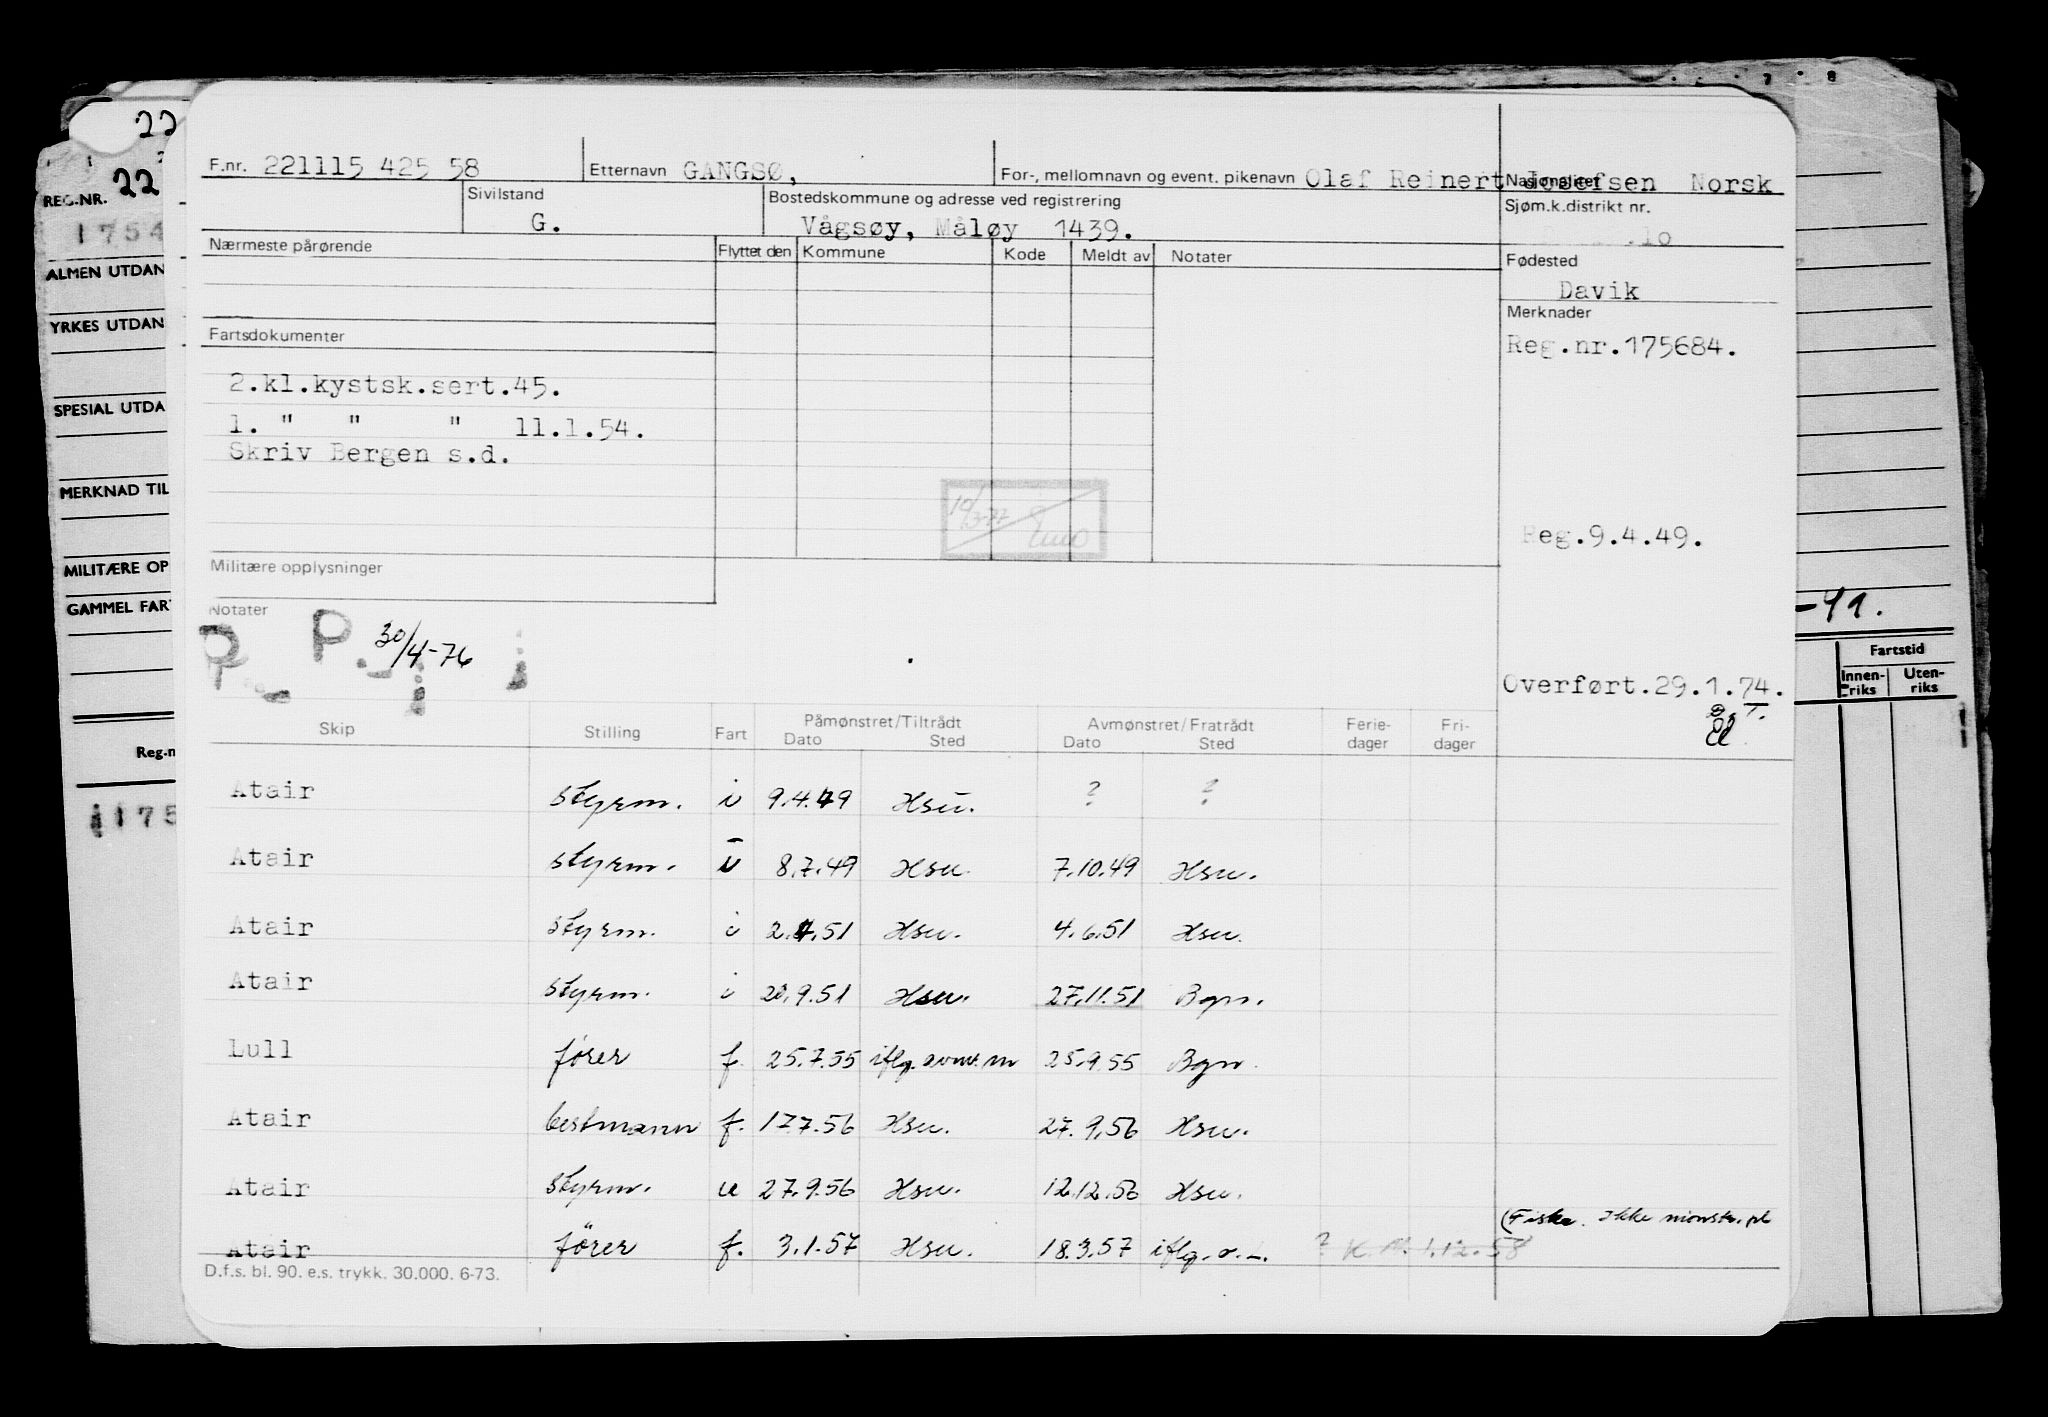 F.nr. 221115 425 58 Etternavn GANGSØ, For-, mellomnavn og event. pikenavn Olaf Reinert Josefsen Nasjonalitet Norsk
Sivilstand G. Bostedskommune og adresse ved registrering Vågsøy, Måløy 1439. Sjøm.k.distrikt nr. 10
Nærmeste pårørende Flyttet den Kommune Kode Meldt av Notater Fødested
Davik
Merknader
Fartsdokumenter Reg.nr.175684.
2.kl.kystsk.sert.45.
1. " " " 11.1.54.
Skriv Bergen s.d.
10/3-77
Reg.9.4.49.
Militære opplysninger
Notater
P. 30/4-76
Overført.29.1.74.
Skip Stilling Fart Påmønstret/Tiltrådt Dato Sted Avmønstret/Fratrådt Dato Sted Ferie-dager Fri-dager
Atair styrm. i 9.4.49 Hsu. ? ?
Atair styrm. u 8.7.49 Hsu 7.10.49 Hsu.
Atair styrm. i 2.4.51 Hsu. 4.6.51 Hsu.
Atair styrm. i 20.9.51 Hsu. 27.11.51 Bgn.
Lull fører f. 25.7.55 iflg. avm. m 25.9.55 Bgn.
Atair bestmann f. 17.7.56 Hsu. 27.9.56 Hsu.
Atair styrm. u 27.9.56 Hsu. 12.12.56 Hsu.
(Fiske. Ikke mønstr.pl
Atair fører f. 3.1.57 Hsu. 18.3.57 iflg. ? 1.12.58
D.f.s. bl. 90. e.s. trykk. 30.000. 6-73.
22
REG.NR. 22
1754
ALMEN UTDAN
YRKES UTDAN
SPESIAL UTDA
MERKNAD TIL
MILITÆRE OP
GAMMEL FART
Reg.n
175
7 8
-49.
Fartstid
Innen-riks Uten-riks